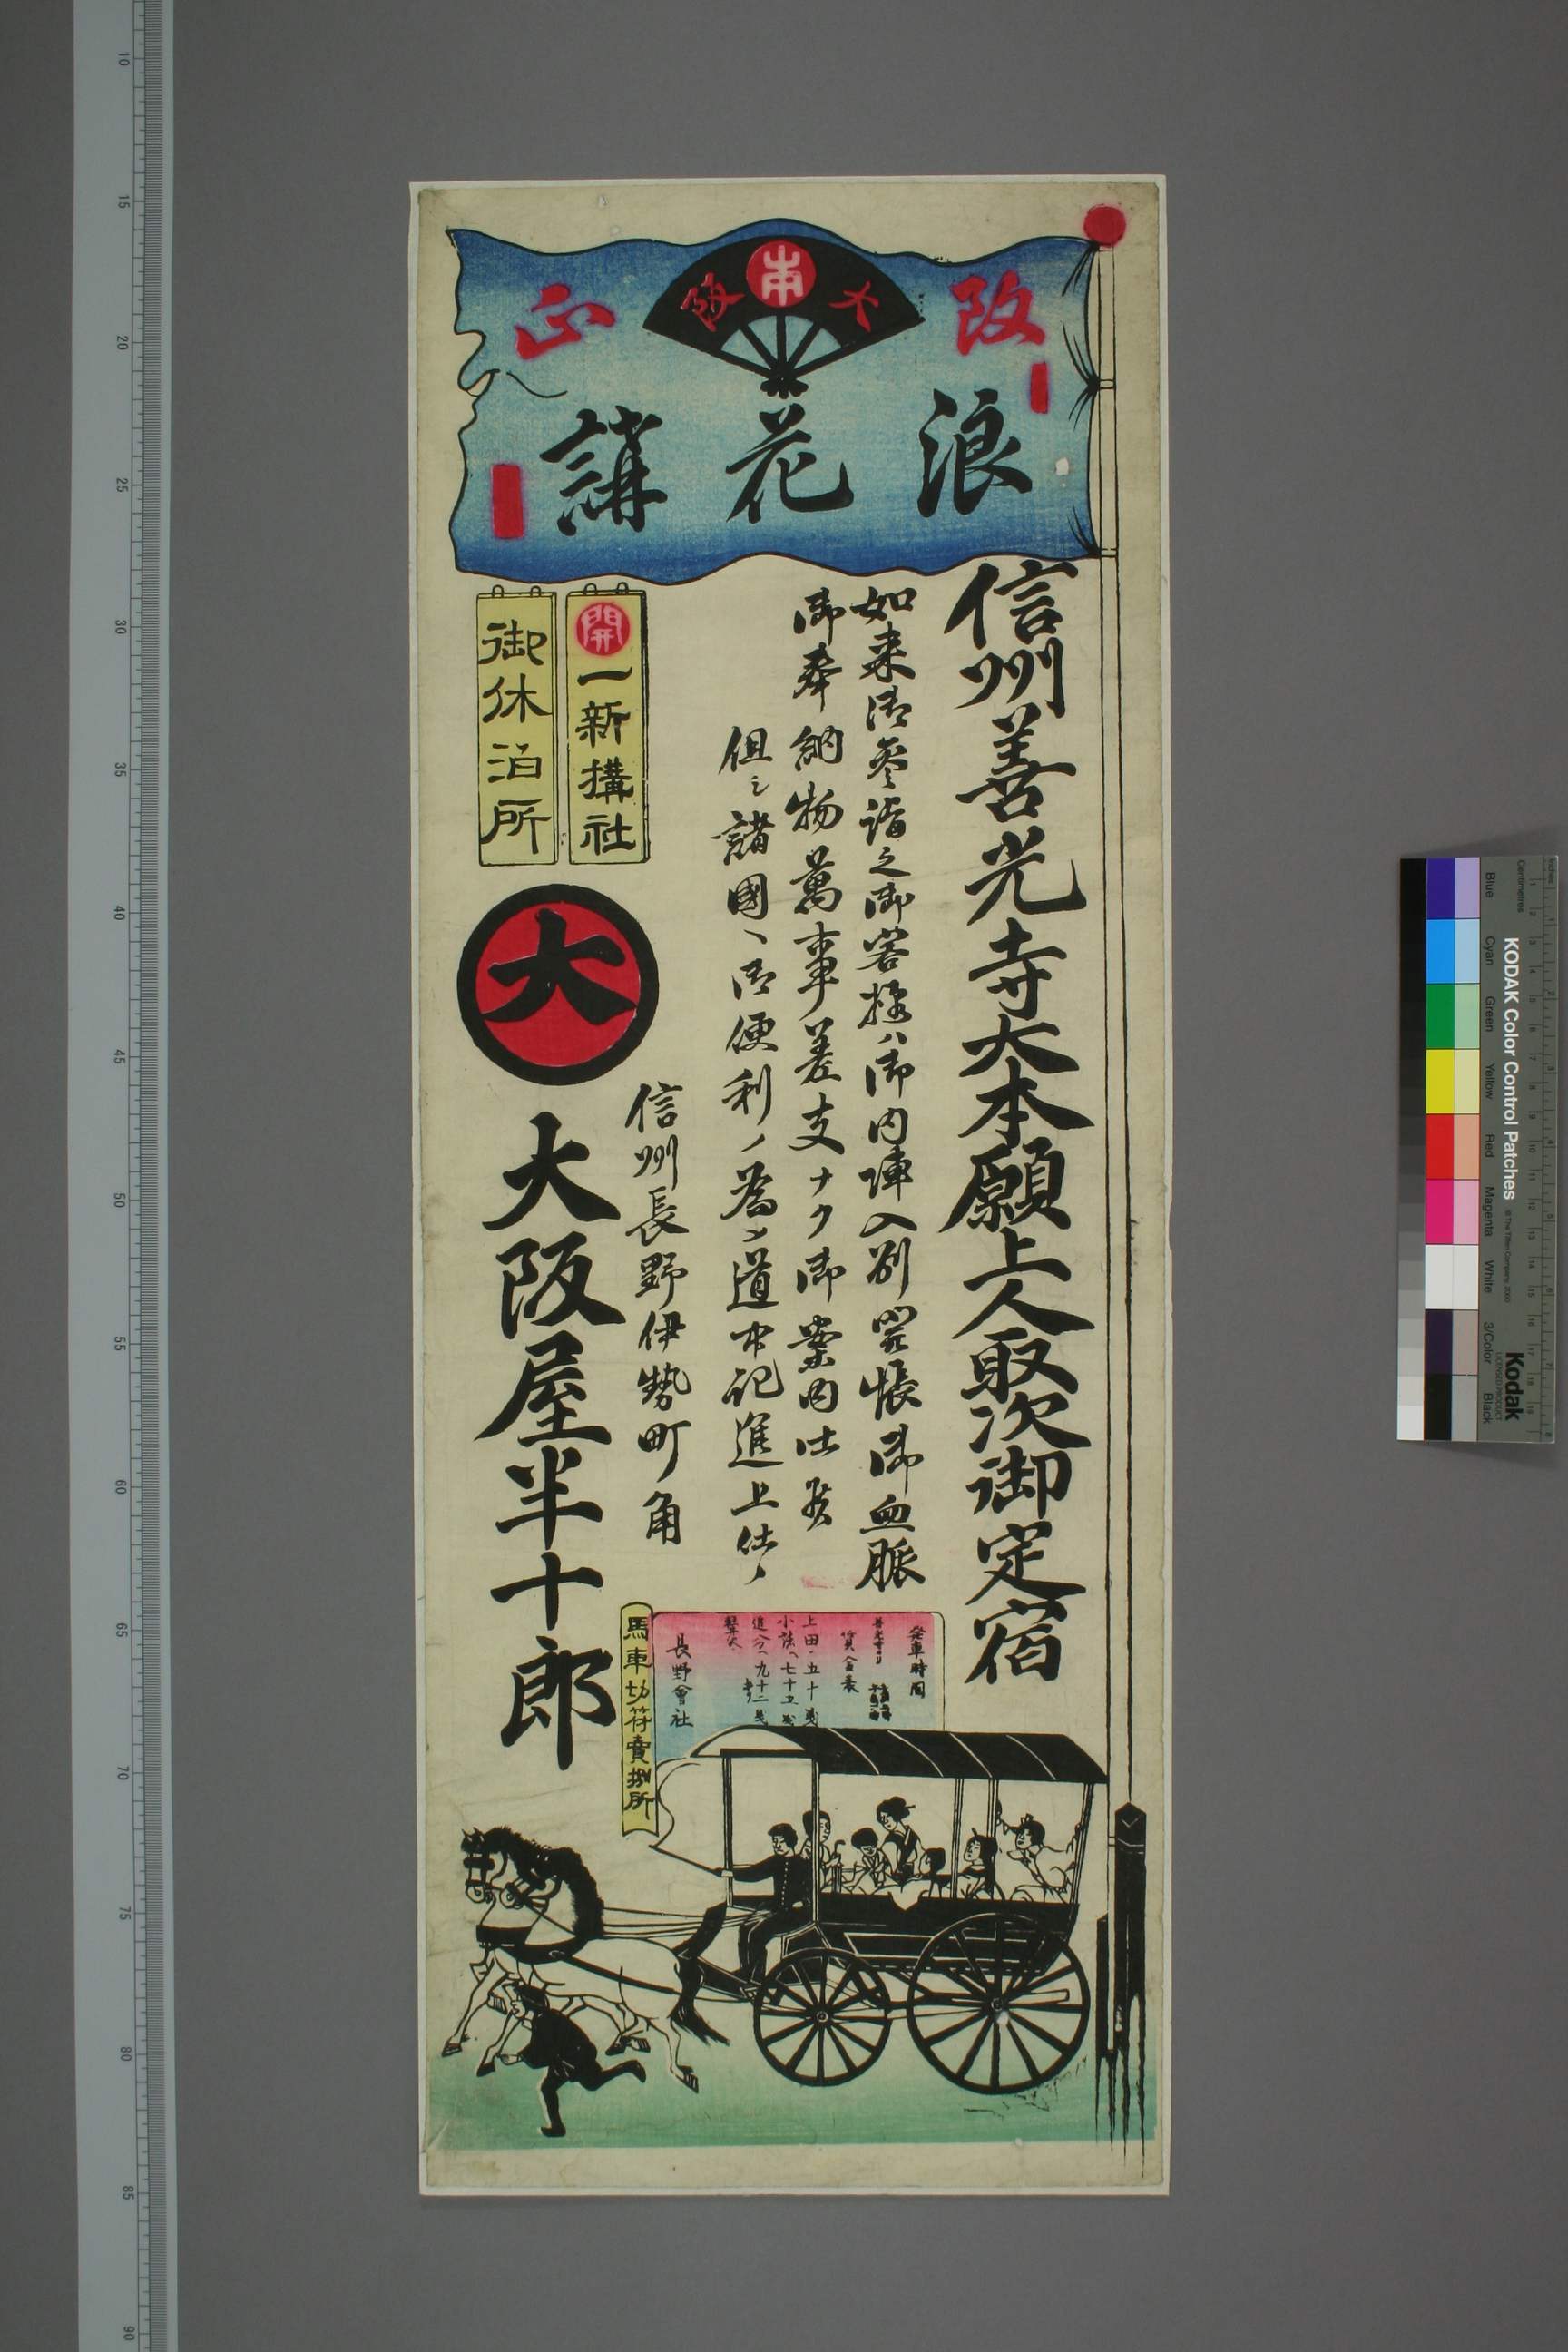 改正
大阪
浪花講
信州善光寺大本願上人取次御定宿
如来御参詣之御客様ハ御内陣入別開帳御血脈
御奉納物萬事差支ナク御案内仕候
但シ諸國ヘ御便利ノ為メ道中記進上仕候
開一新講社
御休泊所
大
信州長野伊勢町角
大阪屋半十郎
発車時間
善光寺ヨリ
賃金表
上田ヘ五十戔
小諸ヘ七十五戔
追分ヘ九十二戔
長野會社
馬車切符賣捌所
KODAK Color Control Patches
Kodak
LICENSED PRODUCT
© The Tiffen Company, 2000
Blue Cyan Green Yellow Red Magenta White 3/Color Black
Inches
Centimetres
10
15
20
25
30
35
40
45
50
55
60
65
70
75
80
85
90